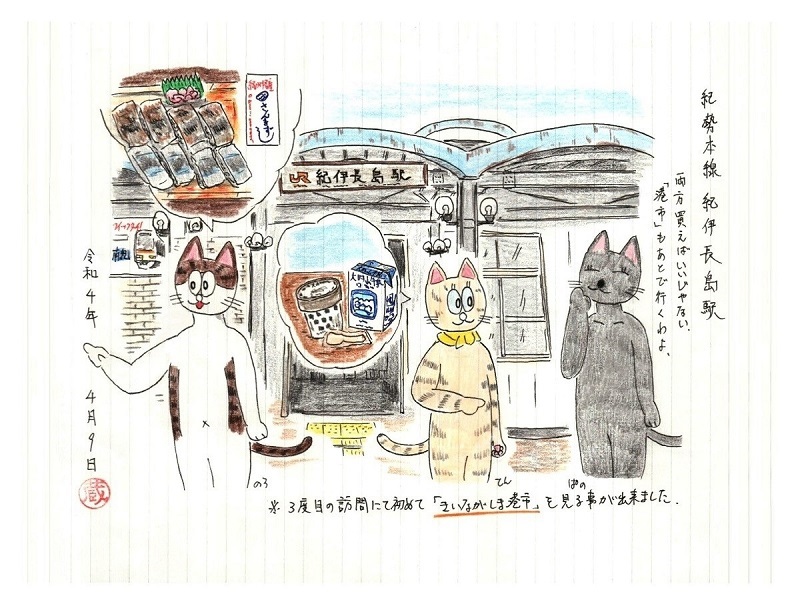 紀勢本線 紀伊長島駅
両方買えばいいじゃない。
「港市」もあとで行くわよ。
さんますし
JR 紀伊長島駅
令和4年 4月9日
蔵
のろ
てん
ぱの
※3度目の訪問にて初めて「きいながしま港市」を見る事が出来ました。